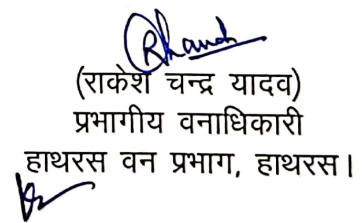 (राकेश चन्द्र यादव)
प्रभागीय वनाधिकारी
हाथरस वन प्रभाग, हाथरस।